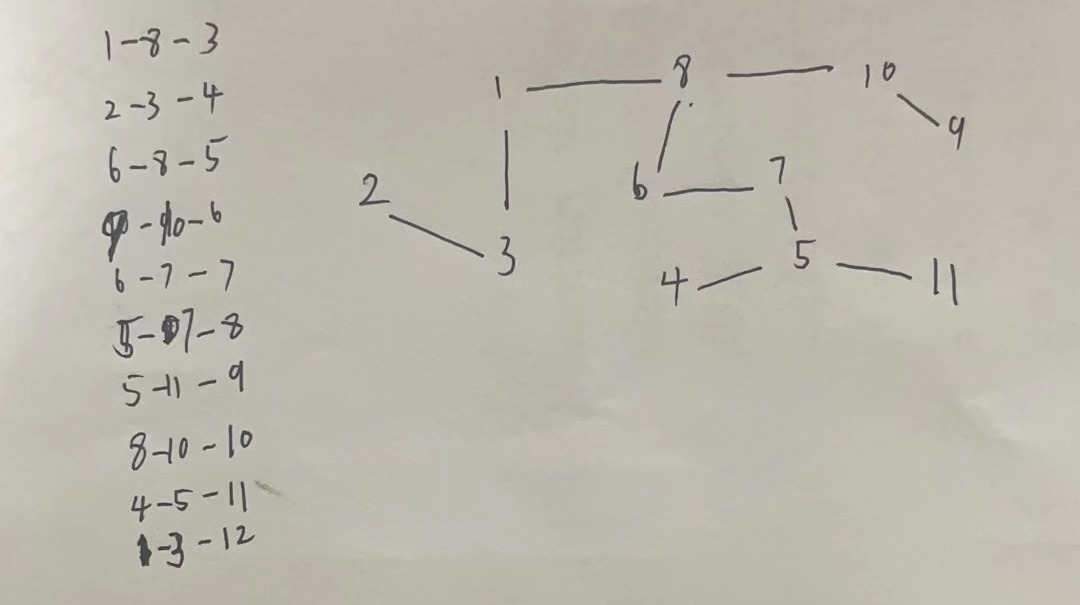 1-8-3
2-3-4
6-8-5
9-10-6
6-7-7
5-7-8
5-11-9
8-10-10
4-5-11
1-3-12
1 8 10
9
2 6 7
3 4 5 11